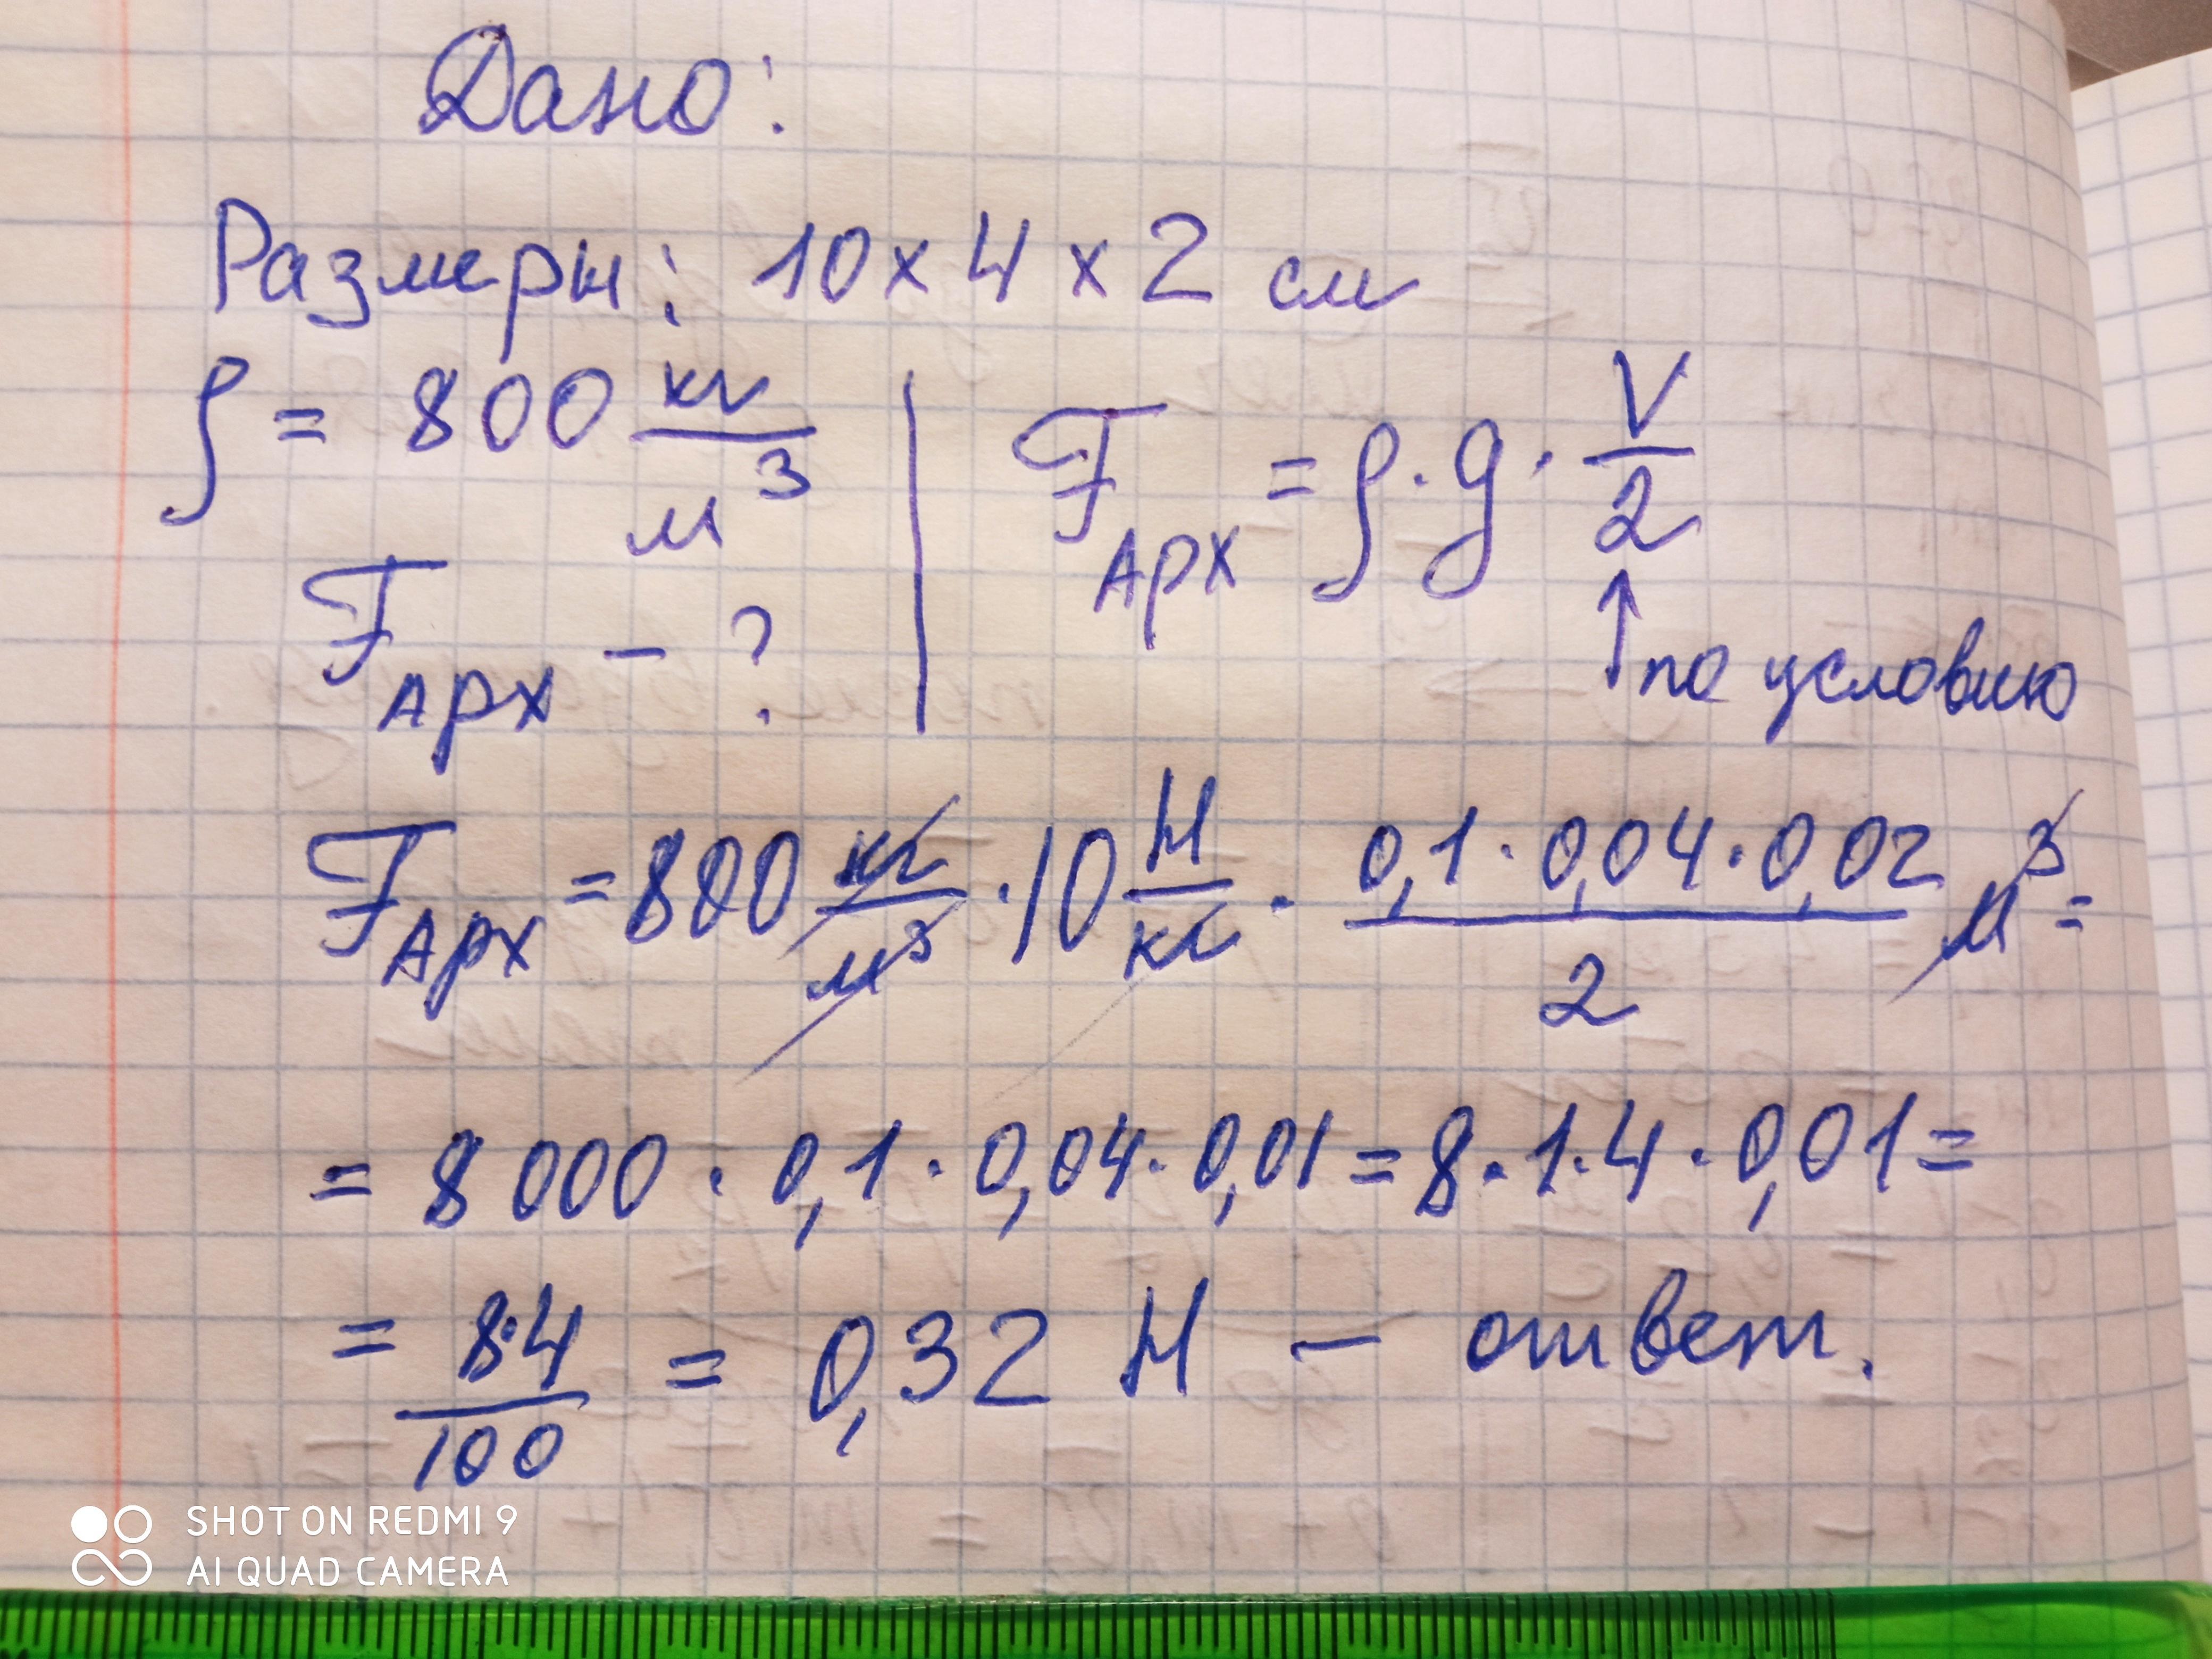 Дано:
Размеры: 10 x 4 x 2 см
ρ = 800 кг/м³
F Арх - ?
F Арх = ρ · g · V/2
↑ по условию
F Арх = 800 кг/м³ · 10 Н/кг · 0,1 · 0,04 · 0,02 / 2 м³ =
= 8 000 · 0,1 · 0,04 · 0,01 = 8 · 1 · 4 · 0,01 =
= 8·4/100 = 0,32 Н - ответ.
SHOT ON REDMI 9
AI QUAD CAMERA